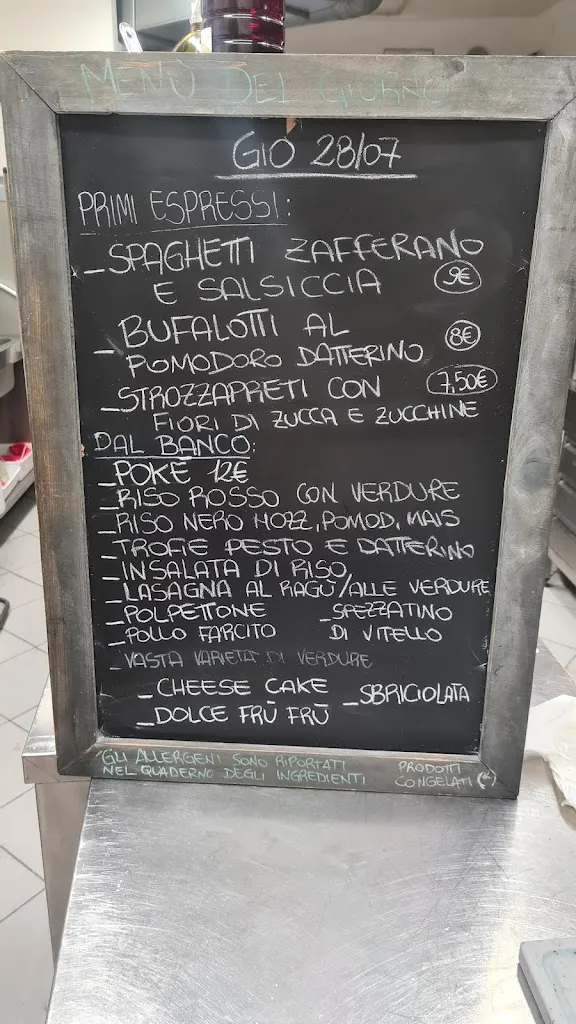 MENÙ DEL GIORNO
GIO 28/07
PRIMI ESPRESSI:
_SPAGHETTI ZAFFERANO
E SALSICCIA 9€
_BUFALOTTI AL 8€
POMODORO DATTERINO
_STROZZAPRETI CON 7,50€
FIORI DI ZUCCA E ZUCCHINE
DAL BANCO:
_POKÉ 12€
_RISO ROSSO CON VERDURE
_RISO NERO MOZZ, POMOD, MAIS
_TROFIE PESTO E DATTERINO
_INSALATA DI RISO
_LASAGNA AL RAGÙ/ALLE VERDURE
_POLPETTONE _SPEZZATINO
_POLLO FARCITO DI VITELLO
_VASTA VARIETÀ DI VERDURE
_CHEESE CAKE _SBRICIOLATA
_DOLCE FRÙ FRÙ
"GLI ALLERGENI SONO RIPORTATI PRODOTTI
NEL QUADERNO DEGLI INGREDIENTI CONGELATI (*)